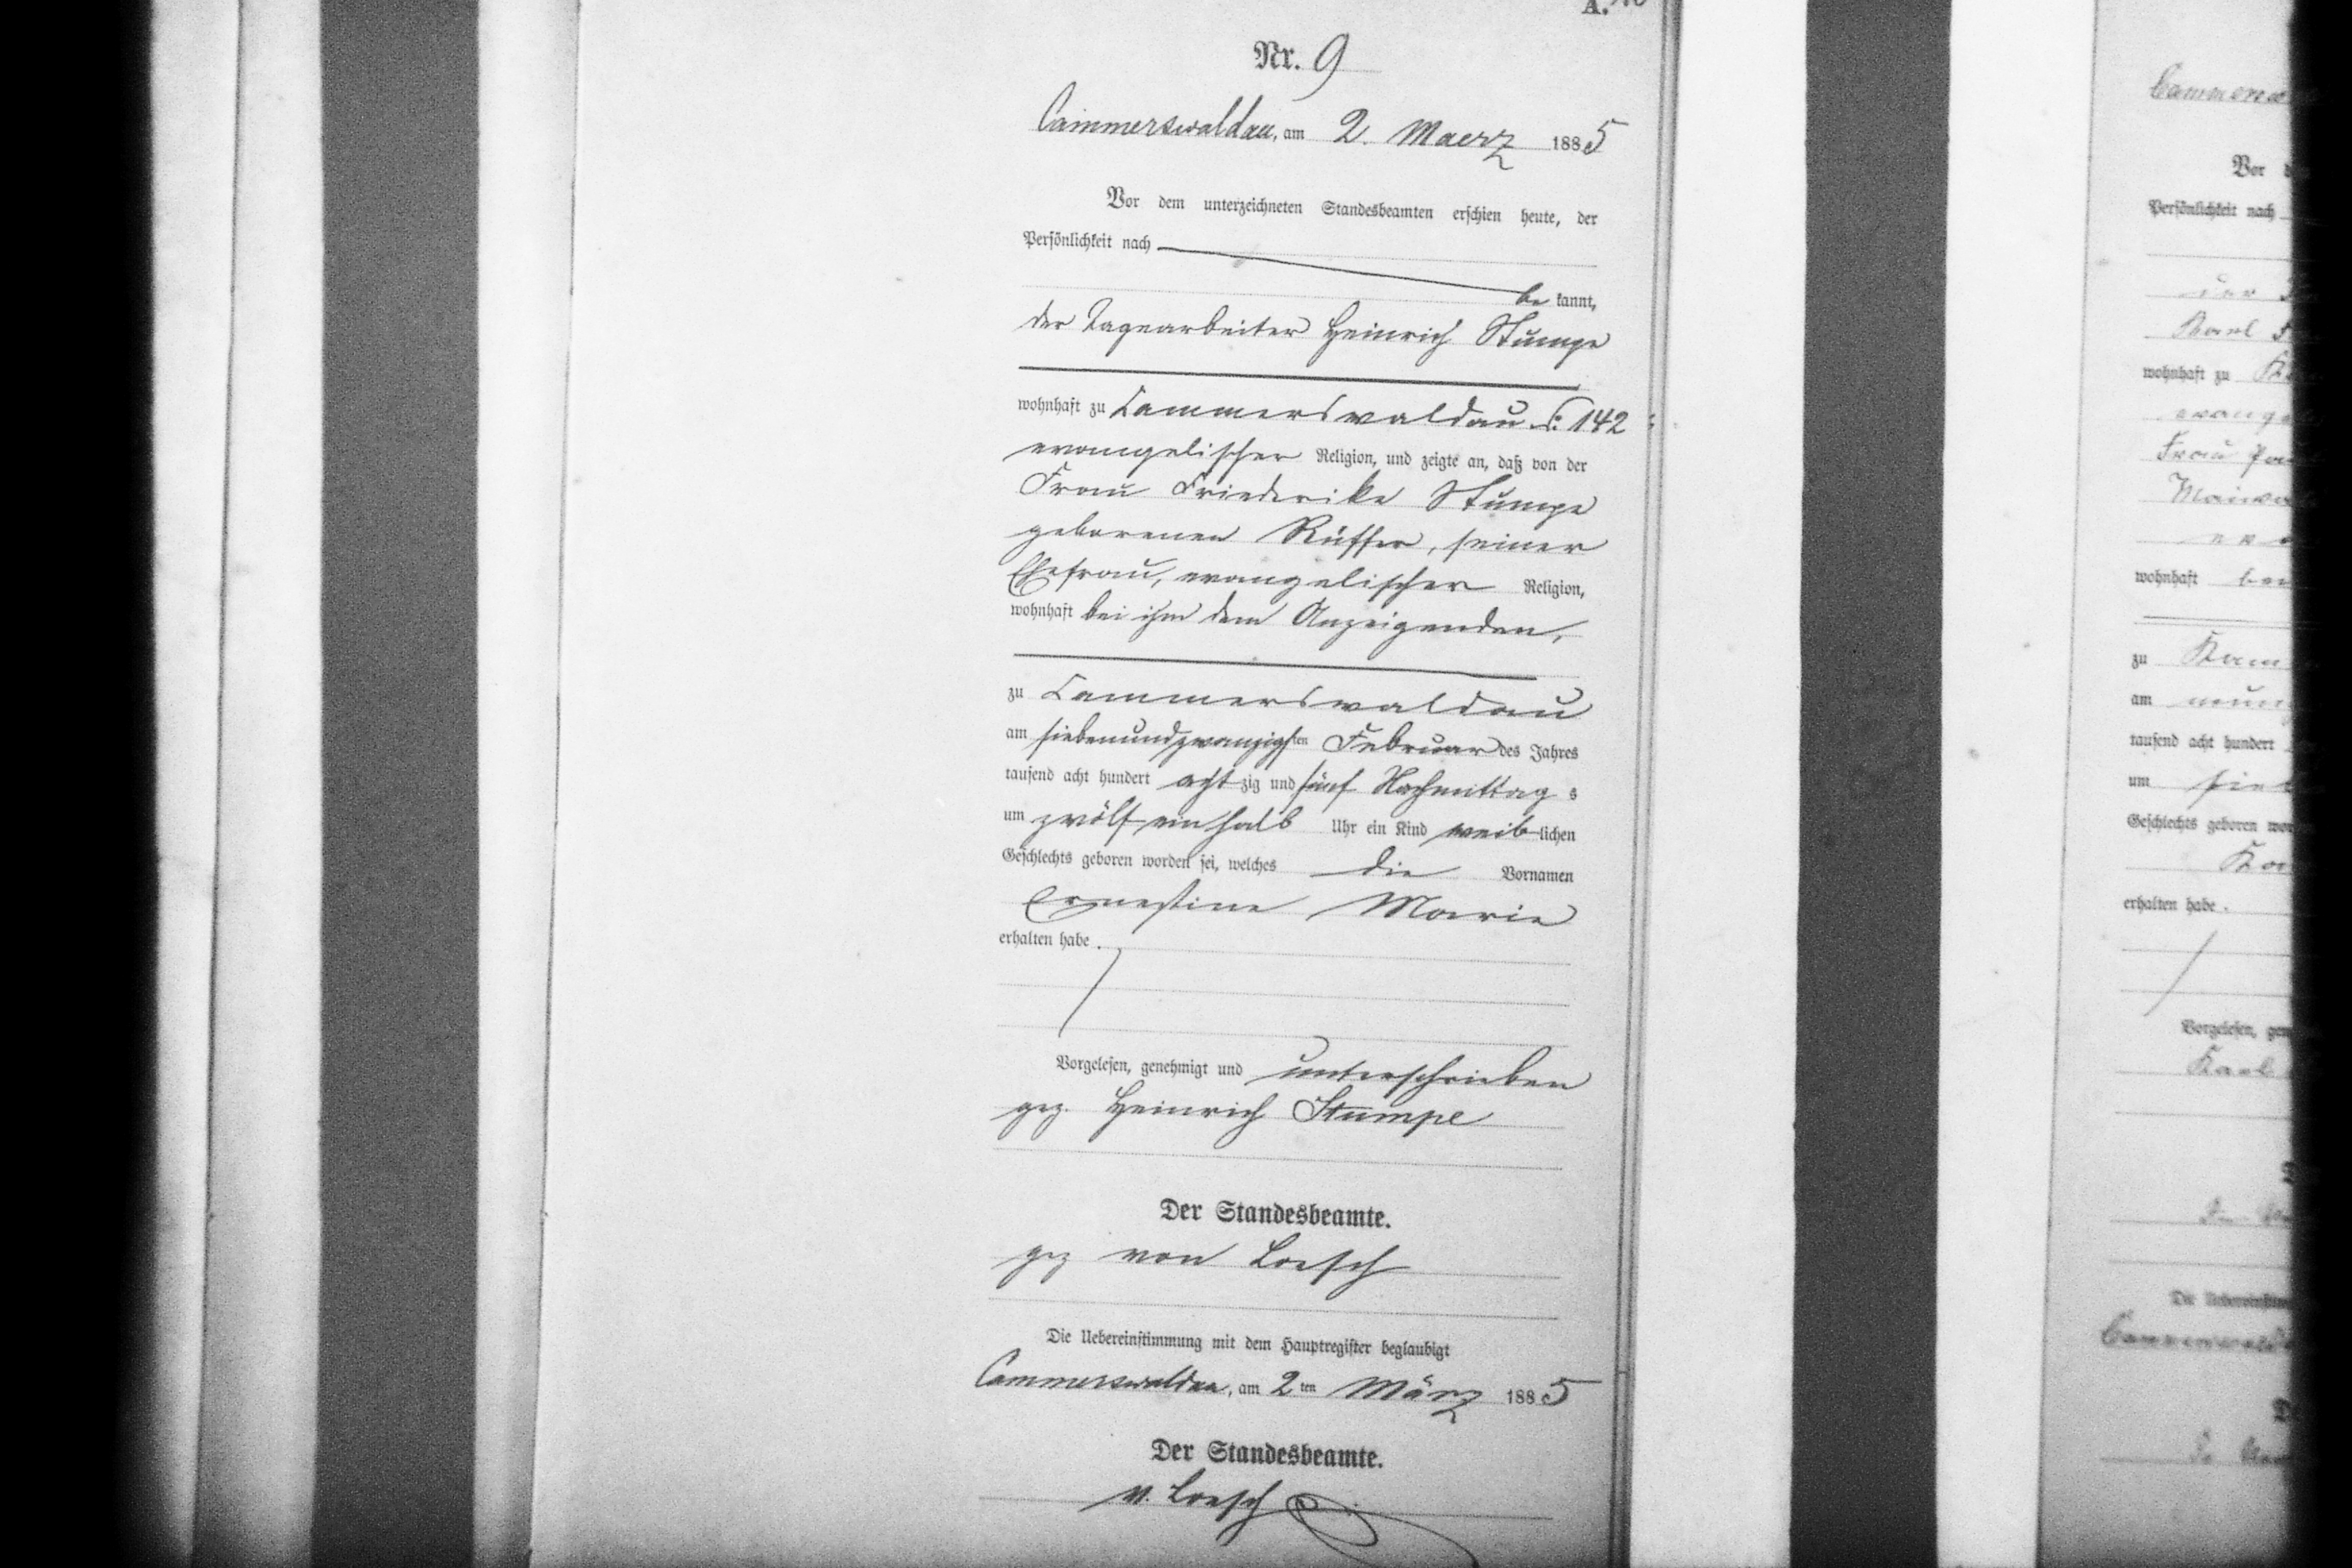 A.
Nr. 9
Cammerswaldau, am 2. Maerz 1885
Vor dem unterzeichneten Standesbeamten erschien heute, der
Persönlichkeit nach
be kannt,
der Tagearbeiter Heinrich Stumpe
wohnhaft zu Cammerswaldau 142
evangelischer Religion, und zeigte an, daß von der
Frau Friederike Stumpe
geborenen Rüffer, seiner
Ehefrau, evangelischer Religion,
wohnhaft bei ihm dem Anzeigenden,
zu Cammerswaldau
am siebenundzwanzigsten Februar des Jahres
tausend acht hundert achtzig und fünf Nachmittags
um zwölf ein halb Uhr ein Kind weiblichen
Geschlechts geboren worden sei, welches die Vornamen
Ernestine Marie
erhalten habe.
Vorgelesen, genehmigt und unterschrieben
gez. Heinrich Stumpe
Der Standesbeamte.
gez von Loesch
Die Uebereinstimmung mit dem Hauptregister beglaubigt
Cammerswaldau, am 2ten März 1885
Der Standesbeamte.
v. Loesch
Vor
Persönlichkeit nach
der
Karl
wohnhaft zu
Frau
wohnhaft
zu
am
tausend acht hundert
um
Geschlechts geboren
erhalten habe.
Vorgelesen,
Karl
Die